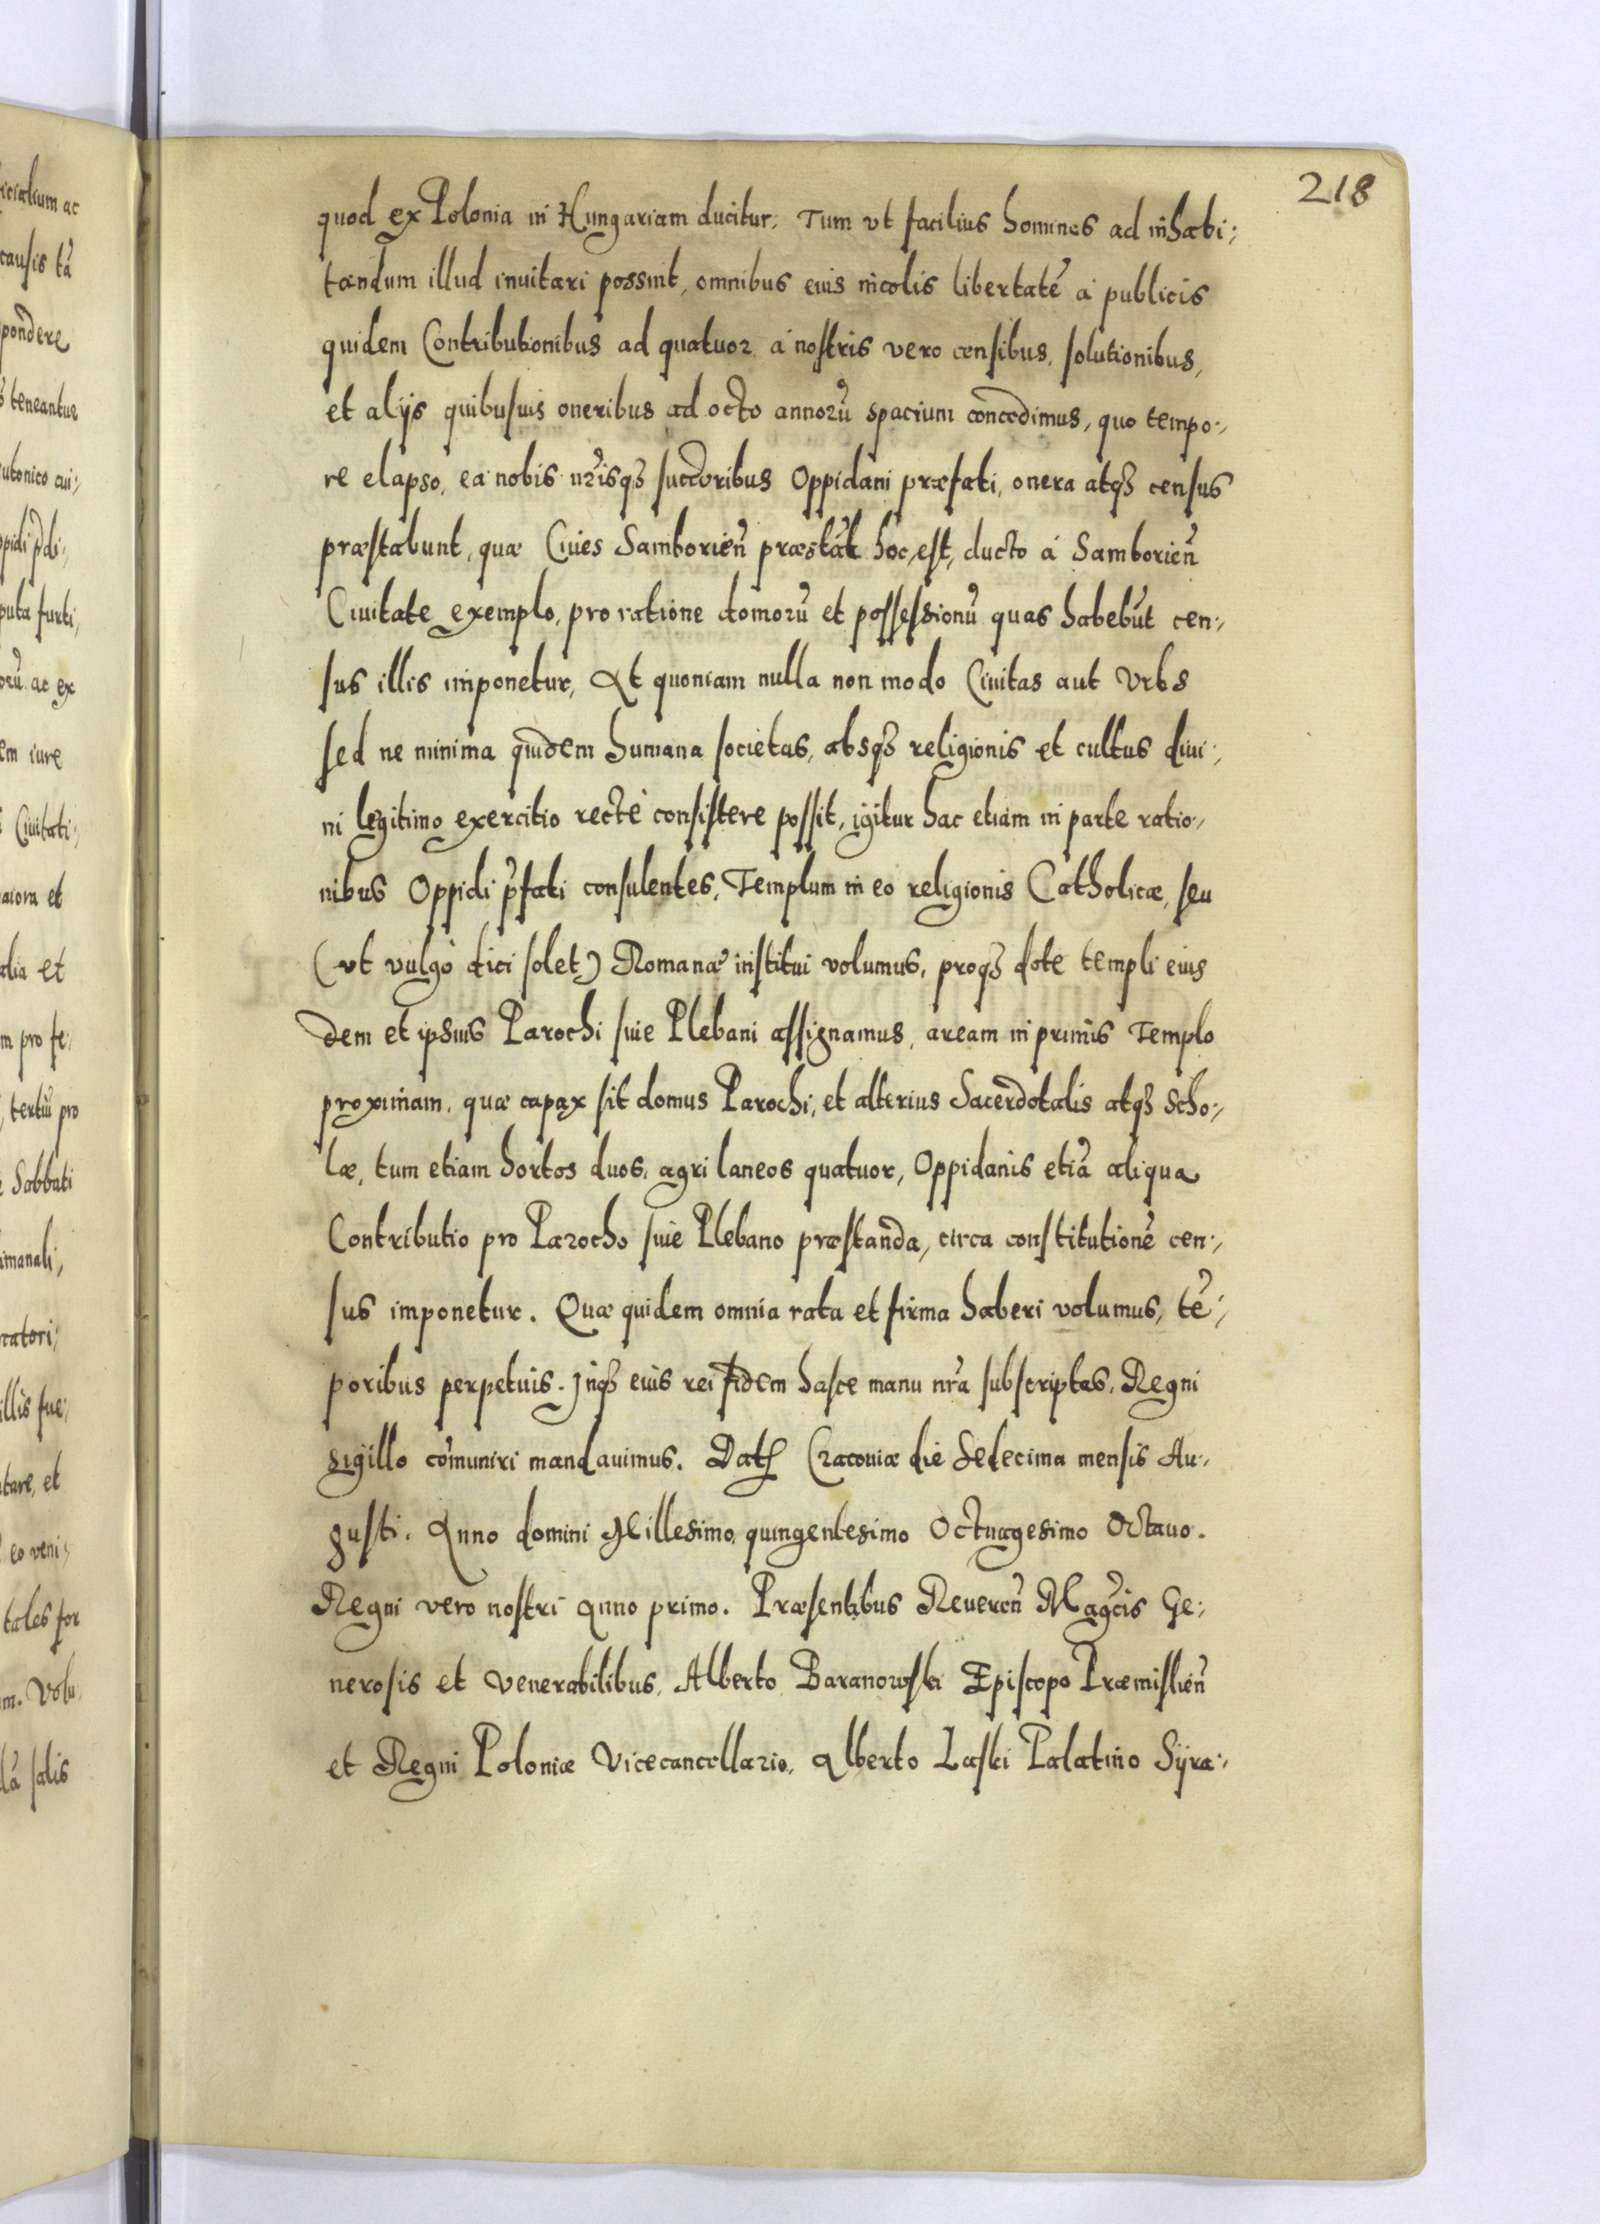 218
quod ex Polonia in Hungariam ducitur, Tum vt facilius homines ad inhabi:
tandum illud inuitari possint, omnibus eius incolis libertatē à publicis
quidem Contributionibus ad quatuor à nostris vero censibus, solutionibus,
et alijs quibusuis oneribus ad octo annorū spacium concedimus, quo tempo:
re elapso, ea nobis nr̄isqȝ succoribus Oppidani præfati, onera atqȝ census
præstabunt, quæ Ciues Samborien̄ præstāt hoc, est, ducto à Samborien̄
Ciuitate exemplo, pro ratione domorū et possessionū quas habebūt cen:
sus illis imponetur, At quoniam nulla non modo Ciuitas aut Vrbs
sed ne minima quidem humana societas, absqȝ religionis et cultus diui:
ni legitimo exercitio rectè consistere possit, igitur hac etiam in parte ratio:
nibus Oppidi p̄fati consulentes, Templum in eo religionis Catholicæ, seu
(vt vulgò dici solet) Romanæ institui volumus, proqȝ dote templi eius
dem et ipsius Parochi siue Plebani assignamus, aream in primis Templo
proximam, quæ capax sit domus Parochi, et alterius Sacerdotalis atqȝ Scho:
læ, tum etiam hortos duos, agri laneos quatuor, Oppidanis etiā aliqua
Contributio pro Parocho siue Plebano præstanda, circa constitutionē cen:
sus imponetur. Quæ quidem omnia rata et firma haberi volumus, tē:
poribus perpetuis. Inqȝ eius rei fidem hasce manu nr̄a subscriptas, Regni
sigillo cōmuniri mandauimus. Dat Cracouiæ die Sedecima mensis Au:
gusti. Anno domini Millesimo, quingentesimo Octuagesimo Octauo.
Regni vero nostri Anno primo. Præsentibus Reueren̄ Mag̃cis Ge:
nerosis et Venerabilibus, Alberto Baranowski Episcopo Præmislien̄
et Regni Poloniæ Vicecancellario, Alberto Laski Palatino Syra: